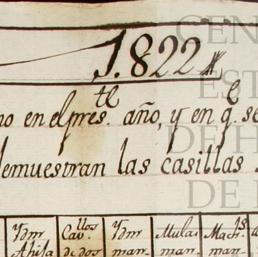 1.822
no en el pres.te año, y en q.e se
demuestran las casillas
Ydm Cav.llos Ydm Mulas Mach.s
de dos man. man. man.
CEN
EST
DE H
DE